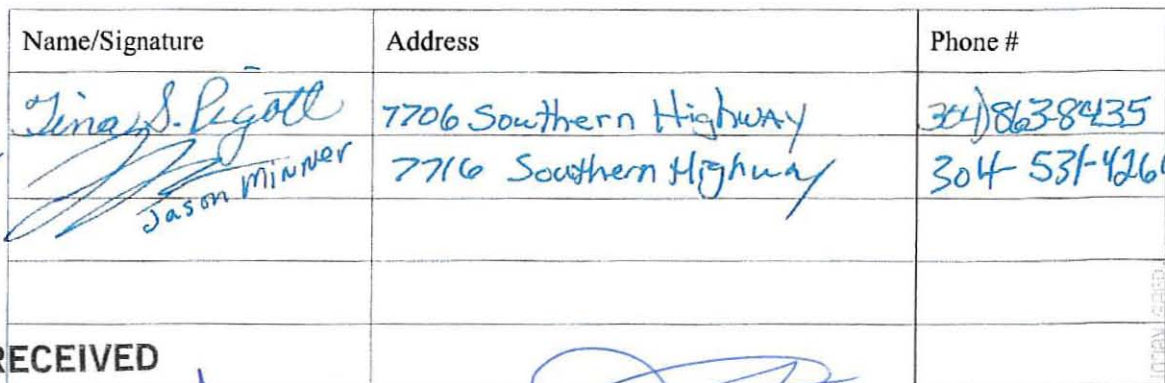 Name/Signature Address Phone #
Tina S. Pigott 7706 Southern Highway 304)863-8435
Jason Minner 7716 Southern Highway 304-531-4266
RECEIVED